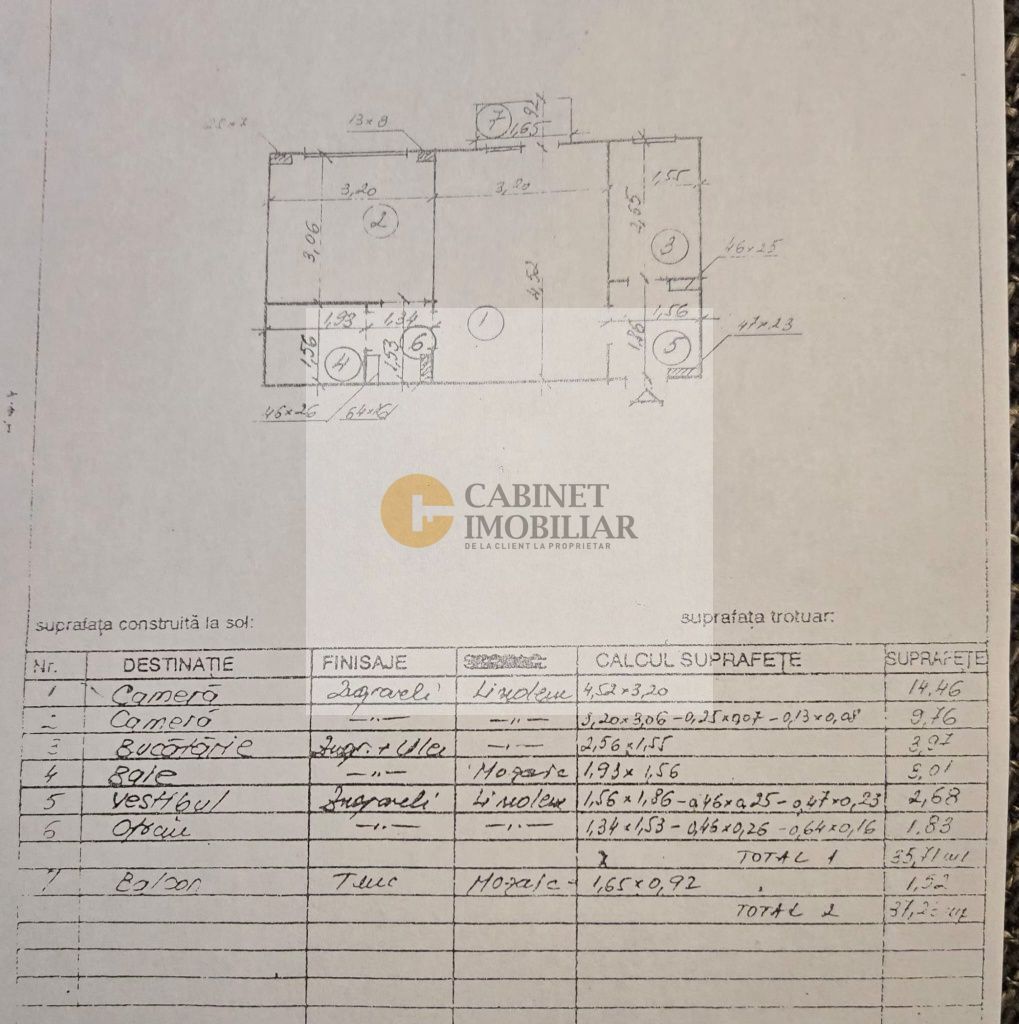 7
13×8
1,65
92
3,20
3,20
1,55
2
3,06
3
46×25
4,52
1,93
1,34
1
1,56
47×23
1,56
4
1,53
6
1,86
5
46×26
CABINET
IMOBILIAR
DE LA CLIENT LA PROPRIETAR
suprafața construită la sol:
suprafața trotuar:
Nr. DESTINAȚIE FINISAJE CALCUL SUPRAFEȚE SUPRAFEȚE
1 Cameră Zugraveli Linoleu 4,52×3,20 14,46
2 Cameră —„— —„— 3,20×3,06 - 0,25×0,07 - 0,13×0,08 9,76
3 Bucătărie Zugr. + Ulei —„— 2,56×1,55 3,97
4 Baie —„— Mozaic 1,93×1,56 3,01
5 Vestibul Zugraveli Linoleu 1,56×1,86 - 0,46×0,25 - 0,47×0,23 2,68
6 —„— —„— 1,34×1,53 - 0,46×0,26 - 0,64×0,16 1.83
TOTAL 1 35,71
7 Balcon Mozaic 1,65×0,92 1,52
TOTAL 2